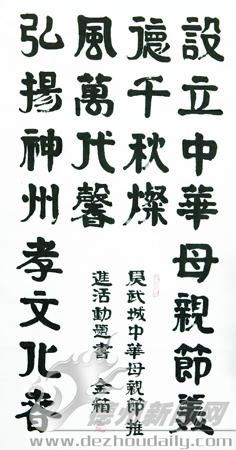 設立中華母親節美
德千秋燦
風萬代馨
弘揚神州孝文化春
武城中華母親節推
進活動題書 金箱
德州新闻网
www.dezhoudaily.com